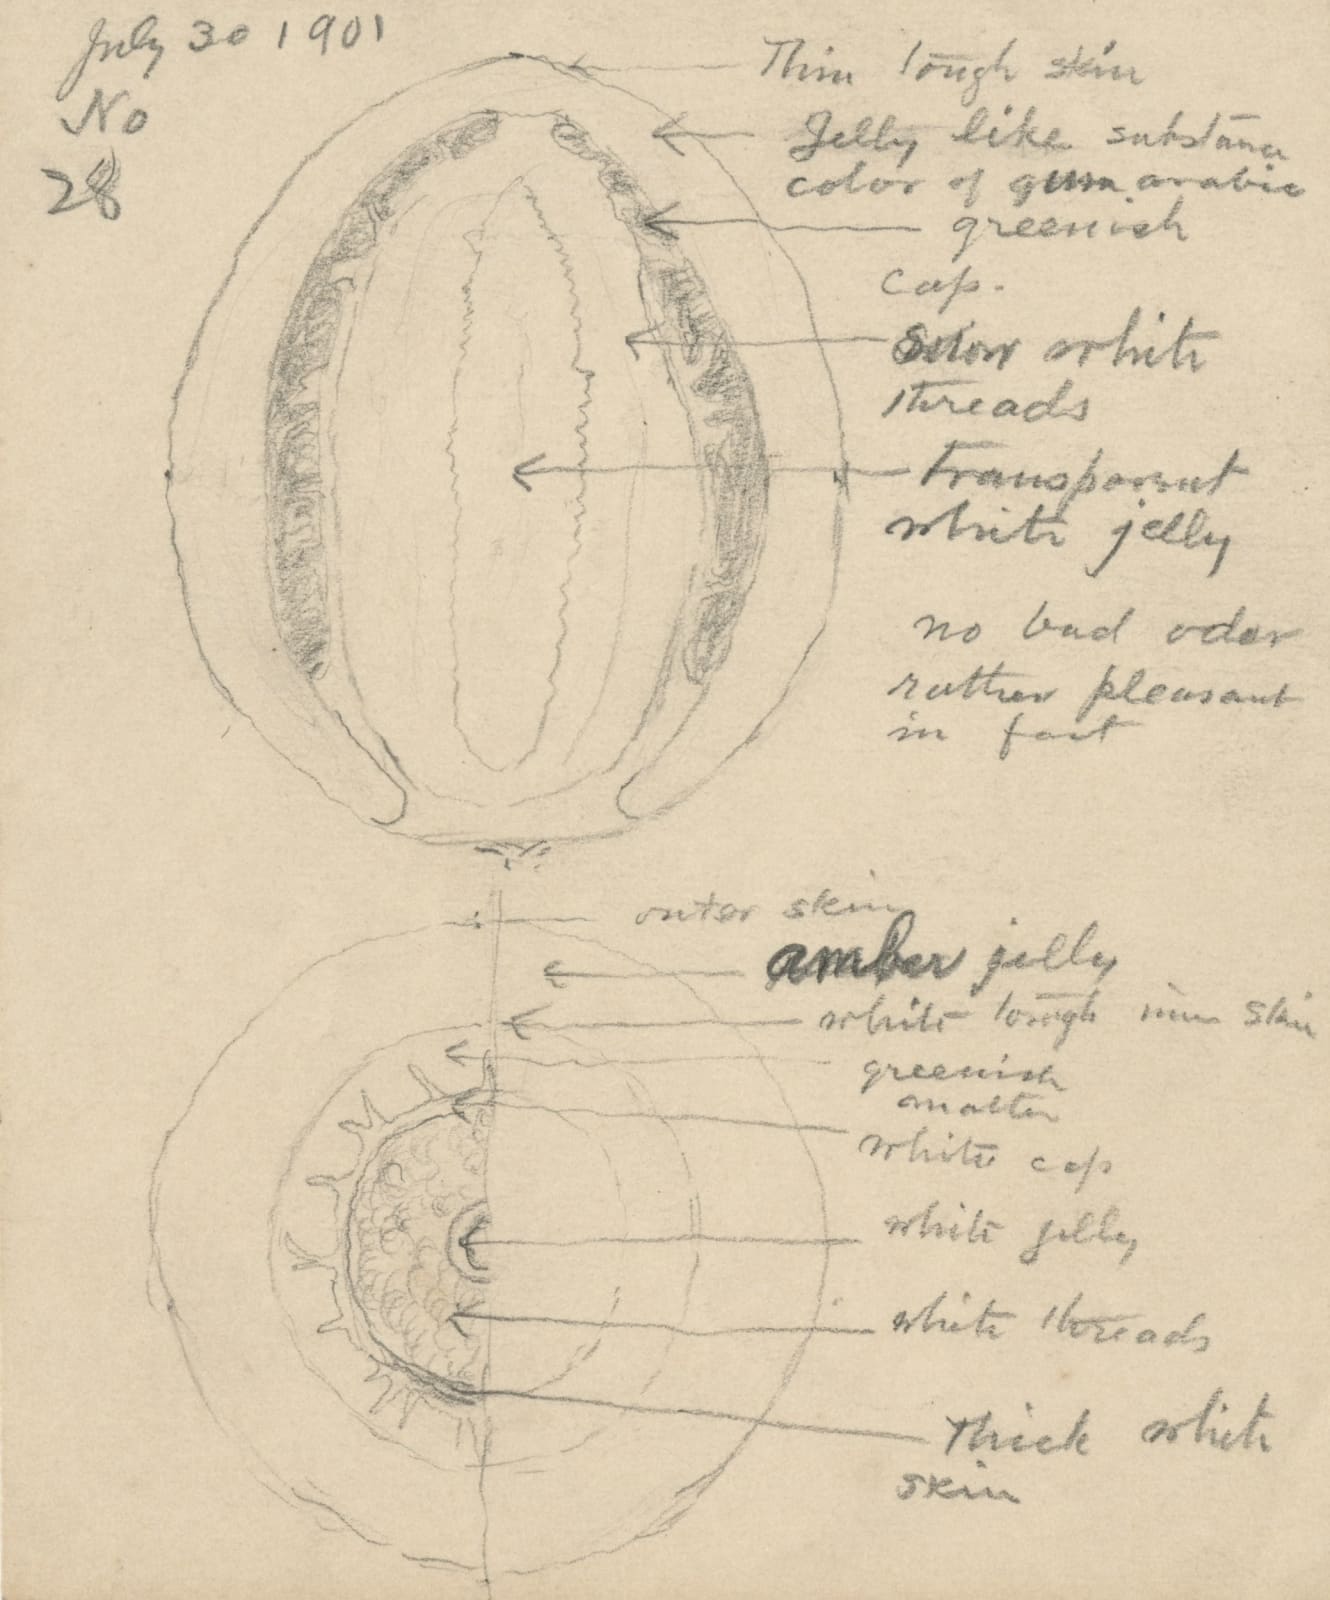 July 30 1901
No
28
Thin tough skin
Jelly like substance
color of gum arabic
greenish
cap.
Snow white
threads
Transparent
white jelly
no bad odor
rather pleasant
in fact
outer skin
amber jelly
white tough inner skin
greenish
matter
white cap
white jelly
white threads
Thick white
skin